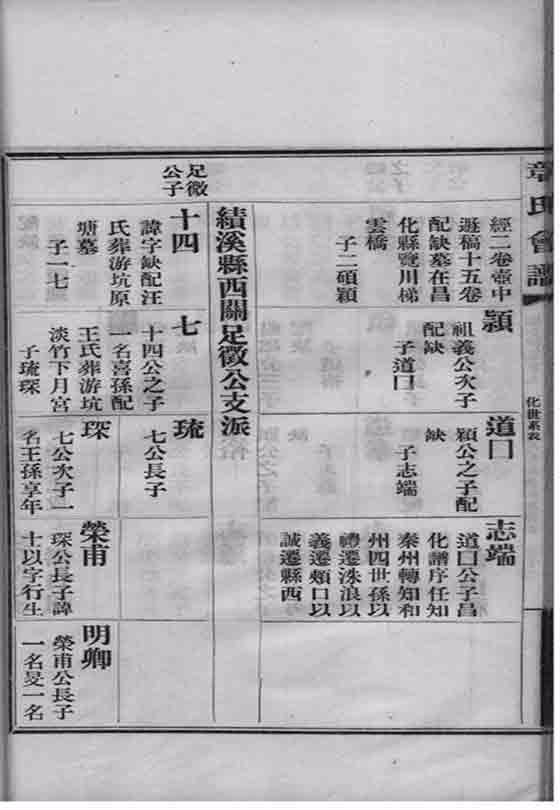 章氏會譜
化世系表
經二卷壺中
遯稿十五卷
配缺墓在昌
化縣覽川梯
雲橋
子二碩穎
穎
祖義公次子
配缺
子道囗
道囗
穎公之子配
缺
子志端
志端
道囗公子昌
化譜序任知
秦州轉知和
州四世孫以
禮遷洙浪以
義遷類口以
誠遷縣西
績溪縣西關足徵公支派
足徵
公子
十四
諱字缺配汪
氏葬游坑原
塘墓
子一七
七
十四公之子
一名喜孫配
王氏葬游坑
淡竹下月宮
子琉琛
琉
七公長子
琛
七公次子一
名王孫享年
榮甫
琛公長子諱
士以字行生
明卿
榮甫公長子
一名旻一名